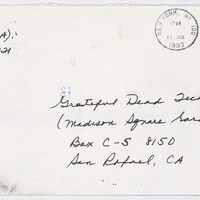 A).
21
NEW YORK, NY 100
PM
1993
Grateful Dead Tick
(Madison Square Gar
Box C-S 8150
San Rafael, CA